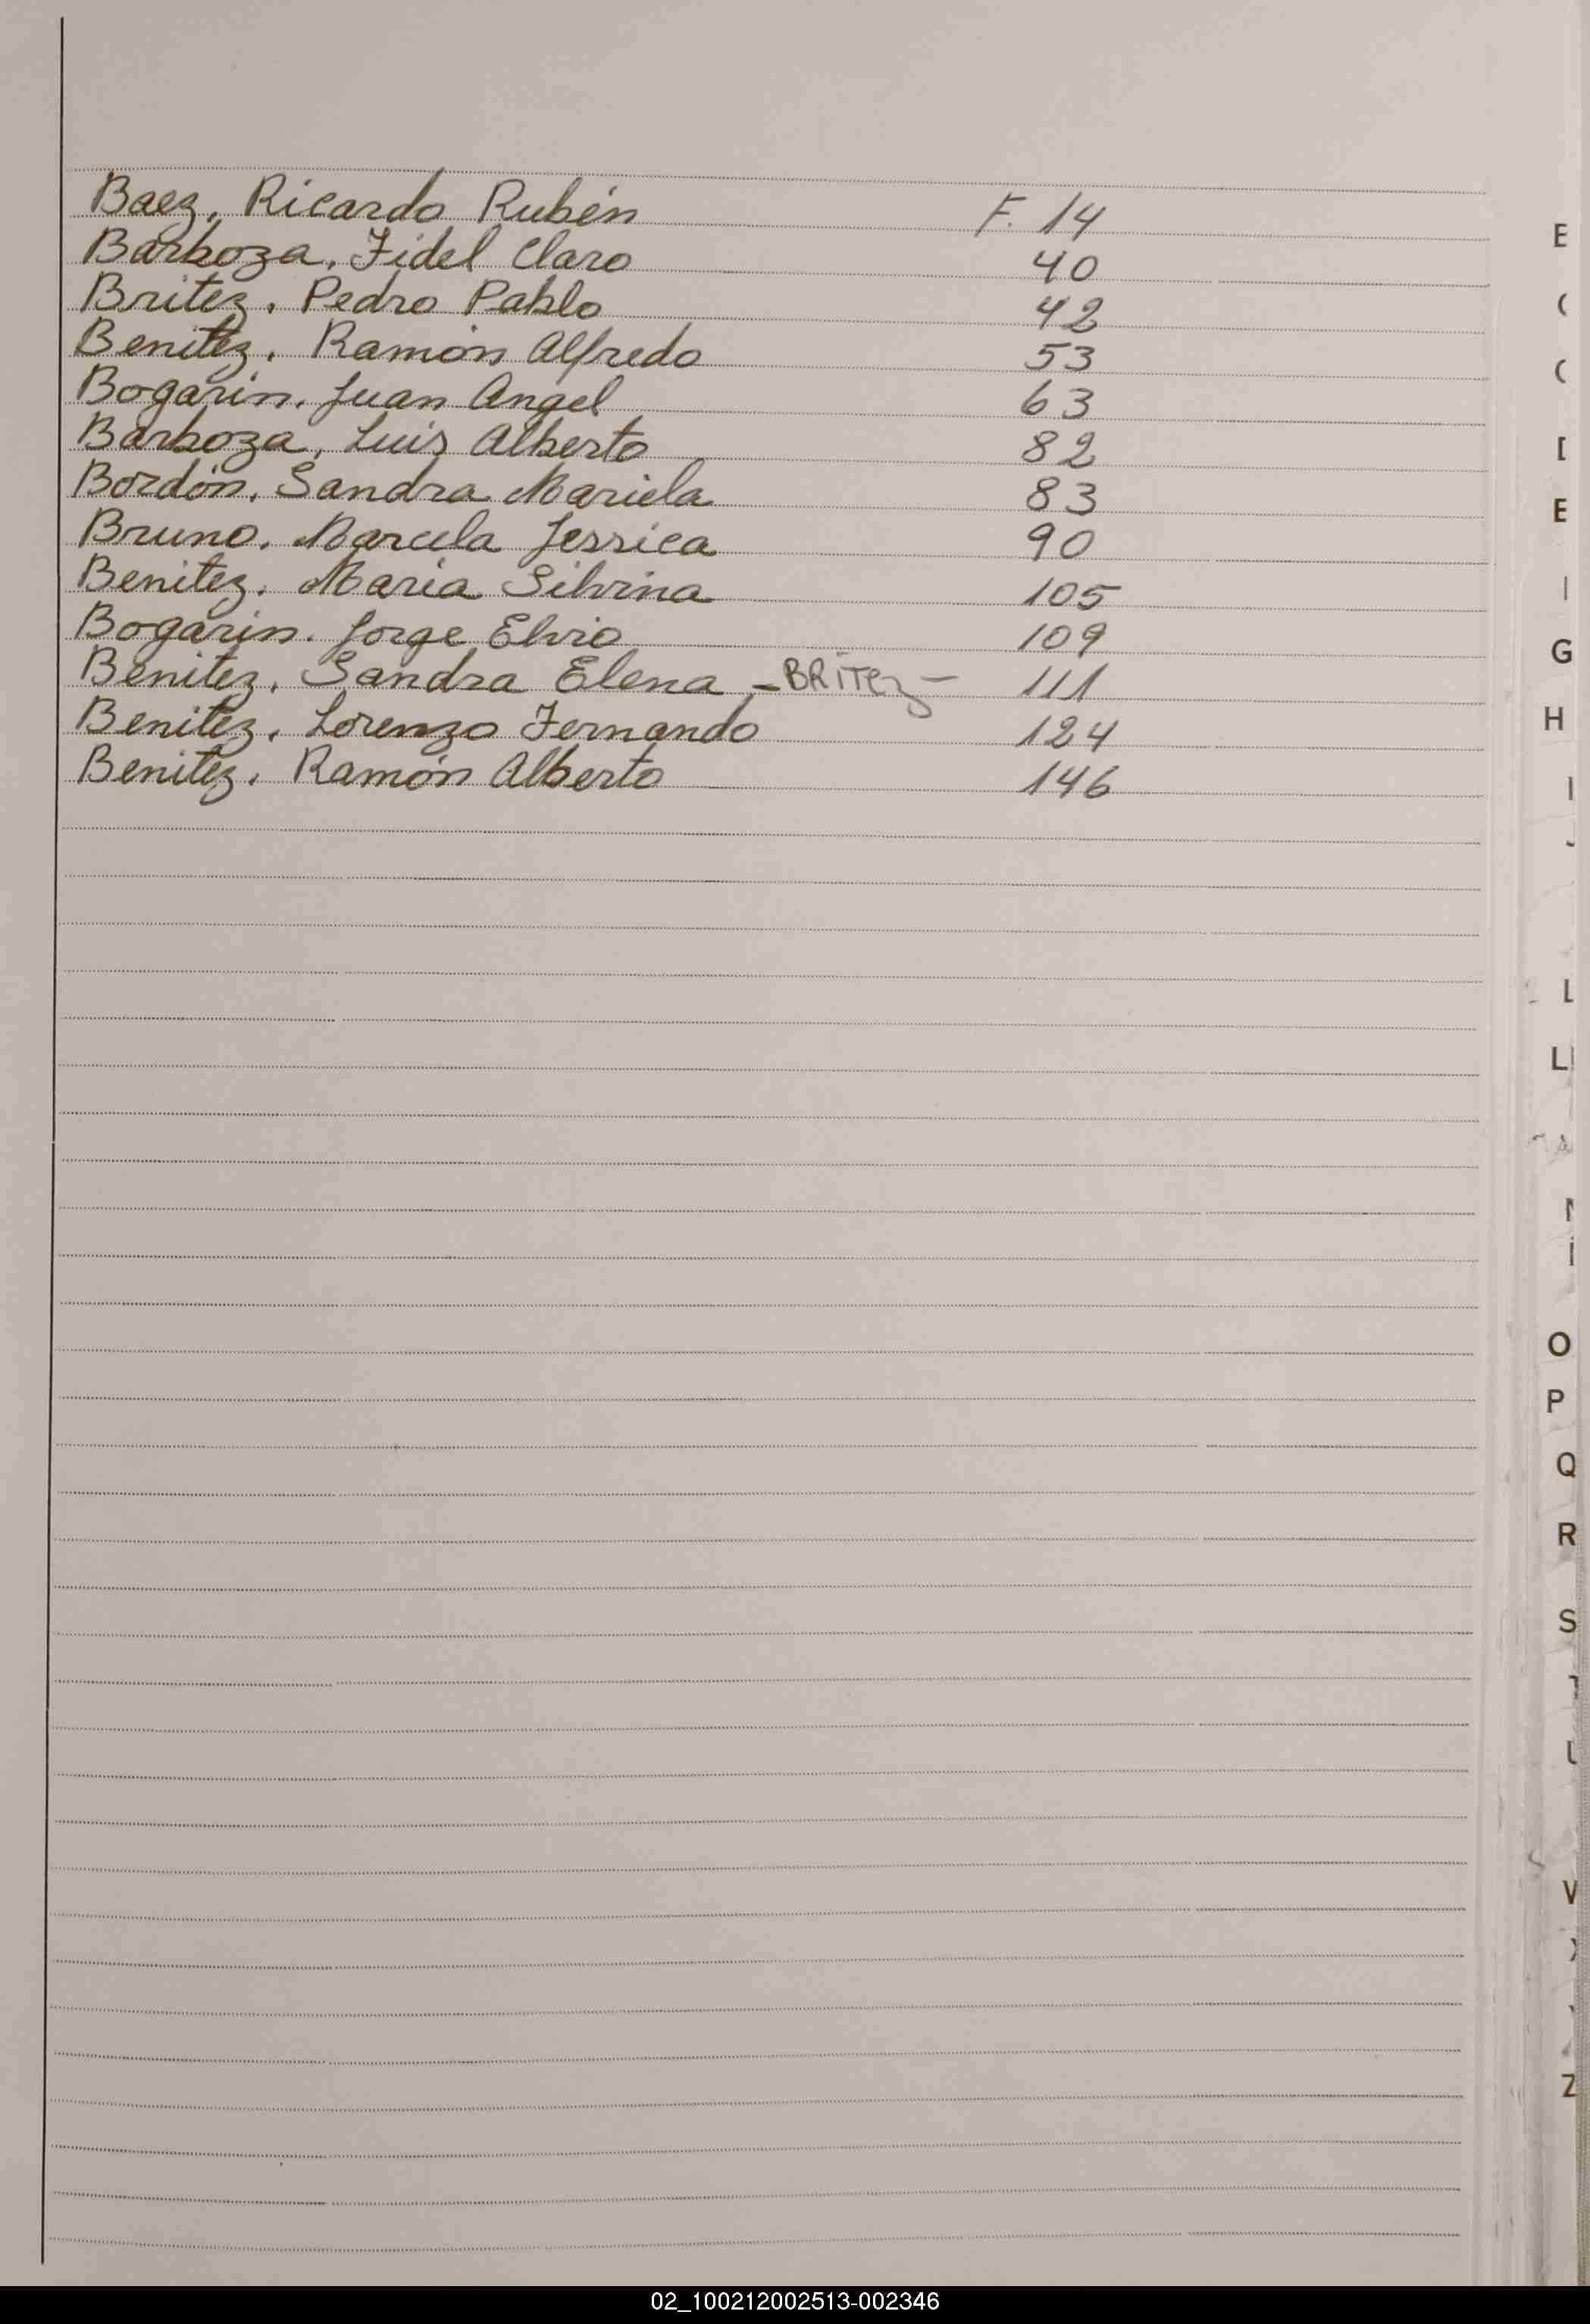 Baez, Ricardo Rubén F. 14
Barboza, Fidel Claro 40
Britez, Pedro Pablo 42
Benitez, Ramón Alfredo 53
Bogarin, Juan Angel 63
Barboza, Luis Alberto 82
Bordón, Sandra Mariela 83
Bruno, Marcela Jessica 90
Benitez, Maria Silvina 105
Bogarin, Jorge Elvio 109
Benitez, Sandra Elena - BRITEz - 111
Benitez, Lorenzo Fernando 124
Benitez, Ramón Alberto 146
E
G
H
I
L
LL
O
P
Q
R
S
V
Z
02_100212002513-002346